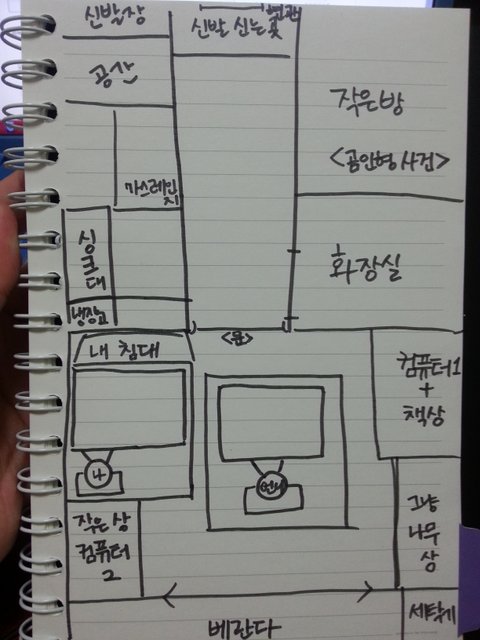 신발장
신발 신는 곳
현관
공간
작은방
<곰인형 사건>
가스레인지
싱크대
화장실
냉장고
<문>
내 침대
컴퓨터1
+
책상
나
언니
그냥
나무
상
작은 상
컴퓨터
2
베란다
세탁기